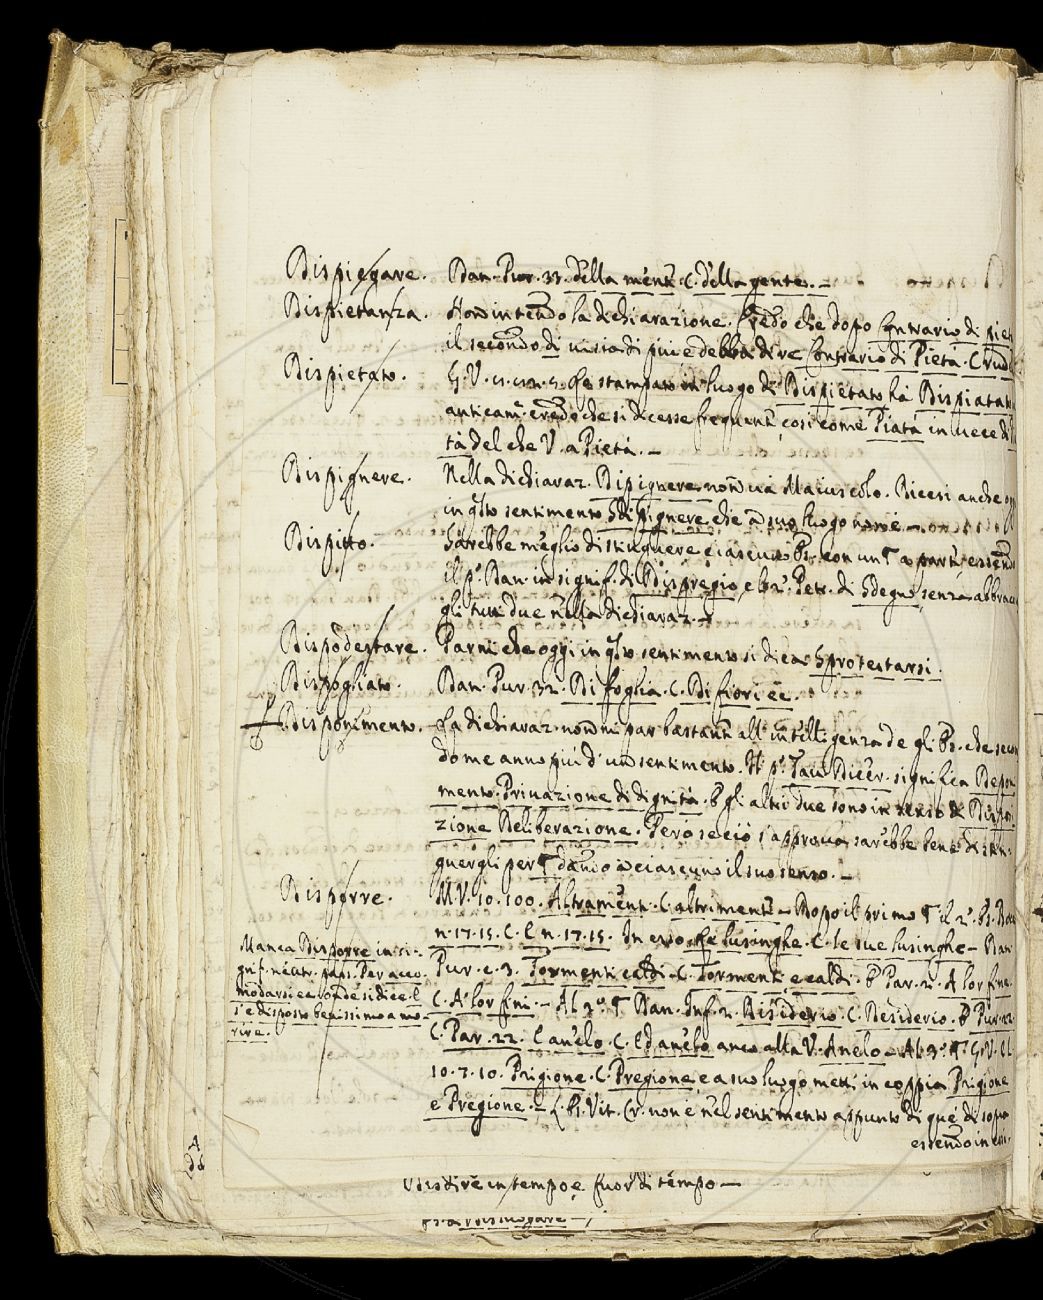 Dispiegare. Dan. Pur. 33. della ment. C. della gente. –
Dispietanza. Non intendo la dichiarazione. Credo che dopo Contrario di piet
il secondo di più e debba dire Contrario di Pietà. Crud
Dispietato. G. V. stampato in luogo di Dispietato ha Dispiatat
anticam. credo che si dicesse frequent. così come Piatà in uece di
tà del che V. a Pietà. –
Dispignere. Nella dichiaraz. Dipignere non uà Maiuscolo. Dicesi anche
in qsto sentimento Sdipignere che a suo luogo non è –
Dispitto. Sarebbe meglio distinguere ciascuno Es. con un ¶ a parte essend
il p.° Dan. in signif. di Dispregio e lo 2.° Petr. di Sdegno, senza abbrac
gli tutti due nella dichiaraz. –
Dispodestare. Parmi che oggi in qsto sentimento si dica Spotestarsi.
Dispogliato. Dan. Pur. 32. Di foglia. C. Di fiori ec.
Disponimento. La dichiaraz. non mi par bastant. all' intelligenza de gli Es. che seco
do me anno più d' un sentimento. Il p.° Tau. Dicer. significa Depon
mento. Priuazione di dignità. E gli altri due sono in senso di Dispos.
zione Deliberazione. Però se ciò s' approua sarebbe bene distin:
guergli per ¶ dando a ciascuno il suo senso. –
Disporre. M. V. 10. 100. Altrament. C. altrimenti – Dopo il primo ¶ il 2.° Es. Bocc
n. 17. 15. C. E n. 17. 15. In esso che lusinghe. C. le sue lusinghe – Dan.
Pur. c. 3. Tormenti caldi – C. Tormenti, e caldi. E Par. 2. A lor fine
C. A' lor fini – Al 2.° ¶ Dan. Inf. 2. Disiderio C. Desiderio. E Pur. 22.
C. Par. 22. L' anelo C. Ed anelo anco alla V. Anelo – Al 3.° ¶ G. V. l.
10. 7. 10. Prigione. C. Pregione e a suo luogo mett. in coppia Prigione
e Pregione – L' Es. Vit. Cr. non è nel sentimento appunto di que' di sopra
essendo in essi.
Manca Disporre in si-
gnif. neutr. pass. Per acco
modarsi ec. onde si dice E
s' è disposto benissimo a mo-
rire.
A
Udsdire in tempo e fuor di tempo –